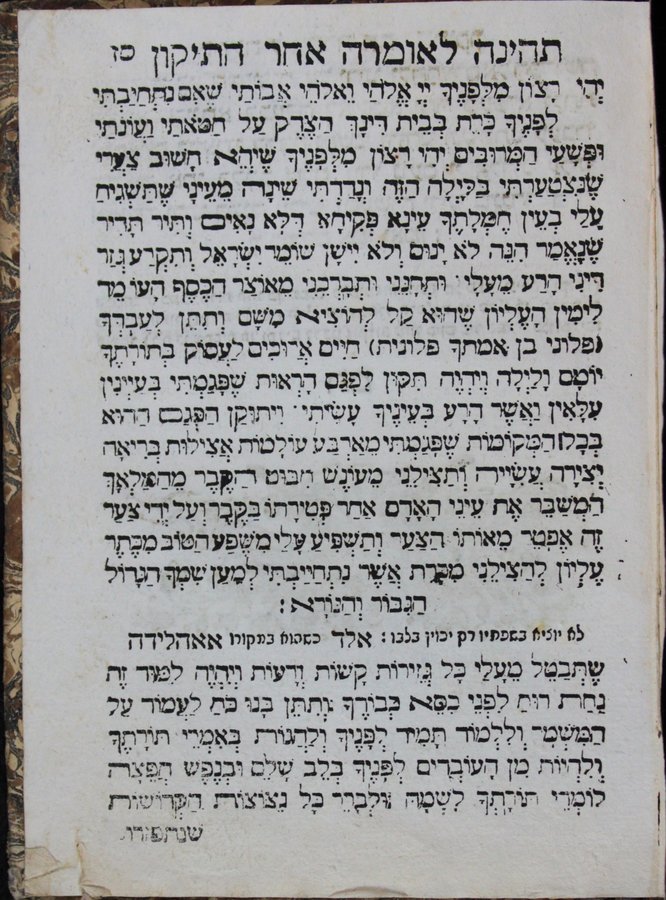 תהינה לאומרה אחר התיקון סז
יְהִי רָצוֹן מִלְּפָנֶיךָ יְיָ אֱלֹהַי וֵאלֹהֵי אֲבוֹתַי שֶׁאִם נִתְחַיַּבְתִּי
לְפָנֶיךָ כָּרֵת בְּבֵית דִּינְךָ הַצֶּדֶק עַל חַטֹּאתַי וַעֲוֹנֹתַי
וּפְשָׁעַי הַמְרוּבִּים יְהִי רָצוֹן מִלְּפָנֶיךָ שֶׁיְּהֵא חָשׁוּב צַעֲרִי
שֶׁנִּצְטַעַרְתִּי בַּלַּיְלָה הַזֶּה וְנָדַדְתִּי שֵׁינָה מֵעֵינַי שֶׁתַּשְׁגִּיחַ
עָלַי בְּעֵין חֶמְלָתֶךָ עֵינָא פְּקִיחָא דְּלָא נָאִים וְתִיר תָּדִיר
שֶׁנֶּאֱמַר הִנֵּה לֹא יָנוּם וְלֹא יִישָׁן שׁוֹמֵר יִשְׂרָאֵל וְתִקְרַע גְּזַר
דִּינִי הָרַע מֵעָלַי׃ וּתְחָנֵּנִי וּתְבָרְכֵנִי מֵאוֹצַר הַכֶּסֶף הָעוֹמֵד
לִימִין הָעֶלְיוֹן שֶׁהוּא קַל לְהוֹצִיא מִשָּׁם וְתִתֵּן לְעַבְדְּךָ
(פלוני בן אמתך פלונית) חַיִּים אֲרוּכִּים לַעֲסוֹק בְּתוֹרָתֶךָ
יוֹמָם וָלַיְלָה וְיִהְיֶה תִּקּוּן לִפְגַם הָרְאוּת שֶׁפָּגַמְתִּי בְּעַיְינִין
עִלָּאִין וַאֲשֶׁר הָרָע בְּעֵינֶיךָ עָשִׂיתִי׃ וִיתוּקַן הַפְּגַם הַהוּא
בְּכָל הַמְּקוֹמוֹת שֶׁפָּגַמְתִּי מֵאַרְבַּע עוֹלָמוֹת אֲצִילוּת בְּרִיאָה
יְצִירָה עֲשִׂיָּה וְתַצִּילֵנִי מֵעוֹנֶשׁ חִבּוּט הַקֶּבֶר מֵהַמַּלְאָךְ
הַמְשַׁבֵּר אֶת עֵינֵי הָאָדָם אַחַר פְּטִירָתוֹ בַּקֶּבֶר וְעַל יְדֵי צַעַר
זֶה אֶפָּטֵר מֵאוֹתוֹ הַצַּעַר וְתַשְׁפִּיעַ עָלַי מִשֶּׁפַע הַטּוֹב מִכֶּתֶר
עֶלְיוֹן לְהַצִּילֵנִי מִכָּרֵת אֲשֶׁר נִתְחַיַּיבְתִּי לְמַעַן שִׁמְךָ הַגָּדוֹל
הַגִּבּוֹר וְהַנּוֹרָא׃
לא יוציא בשפתיו רק יכוין בלבו׃ אלד כשהוא בתקורו אאהלידה
שֶׁתְּבַטֵּל מֵעָלַי כָּל גְּזֵירוֹת קָשׁוֹת וְרָעוֹת וְיִהְיֶה לִמּוּד זֶה
נַחַת רוּחַ לִפְנֵי כִּסֵּא כְּבוֹדֶךָ וְתִתֵּן בָּנוּ כֹּחַ לַעֲמוֹד עַל
הַמִּשְׁמָר וְלִלְמוֹד תָּמִיד לְפָנֶיךָ וְלַהֲגוֹת בְּאִמְרֵי תּוֹרָתֶךָ
וְלִהְיוֹת מִן הָעוֹבְדִים לְפָנֶיךָ בְּלֵב שָׁלֵם וּבְנֶפֶשׁ חֲפֵצָה
לוֹמְדֵי תוֹרָתְךָ לִשְׁמָהּ וּלְבָרֵר כָּל נִצוֹצוֹת הַקְּדוֹשׁוֹת
שנתפזרו